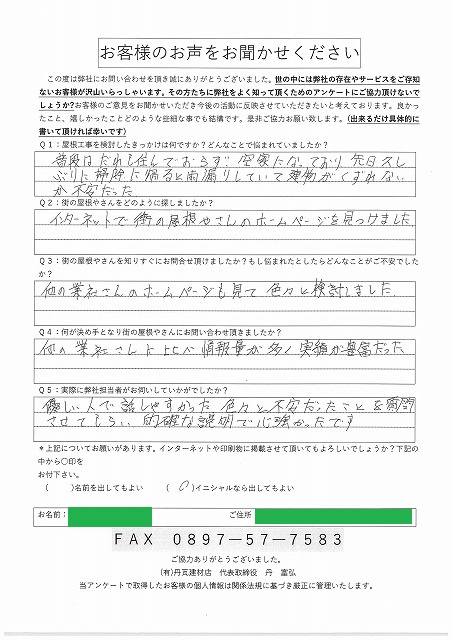 お客様のお声をお聞かせください
この度は弊社にお問い合わせを頂き誠にありがとうございました。世の中には弊社の存在やサービスをご存知
ないお客様が沢山いらっしゃいます。その方たちに弊社をよく知って頂くためのアンケートにご協力頂けないで
しょうか?お客様のご意見をお聞かせいただき今後の活動に反映させていただきたいと考えております。良かっ
たこと、嬉しかったことどのような些細な事でも結構です。是非ご協力お願い致します。(出来るだけ具体的に
書いて頂ければ幸いです)
Q1:屋根工事を検討したきっかけは何ですか?どんなことで悩まれていましたか?
普段はだれも住んでおらず 空家になっており 先日久し
ぶりに掃除に帰ると雨漏りしていて建物がくずれない
か不安だった
Q2:街の屋根やさんをどのように探しましたか?
インターネットで街の屋根やさんのホームページを見つけました
Q3:街の屋根やさんを知りすぐにお問合せ頂けましたか?もし悩まれたとしたらどんなことがご不安でした
か?
他の業社さんのホームページも見て 色々と検討しました
Q4:何が決め手となり街の屋根やさんにお問い合わせ頂きましたか?
他の業社さんに比べ情報量が多く実績が豊富だった
Q5:実際に弊社担当者がお伺いしていかがでしたか?
優しい人で話しやすかった 色々と不安だったことを質問
させてもらい 的確な説明で心強かったです
*上記についてお願いがあります。インターネットや印刷物に掲載させて頂いてもよろしいでしょうか?下記の
中から〇印を
お付下さい。
( )名前を出してもよい ( 〇 )イニシャルなら出してもよい
お名前: ご住所
FAX 0897-57-7583
ご協力ありがとうございました。
(有)丹瓦建材店 代表取締役 丹 富弘
当アンケートで取得したお客様の個人情報は関係法規に基づき厳正に管理いたします。